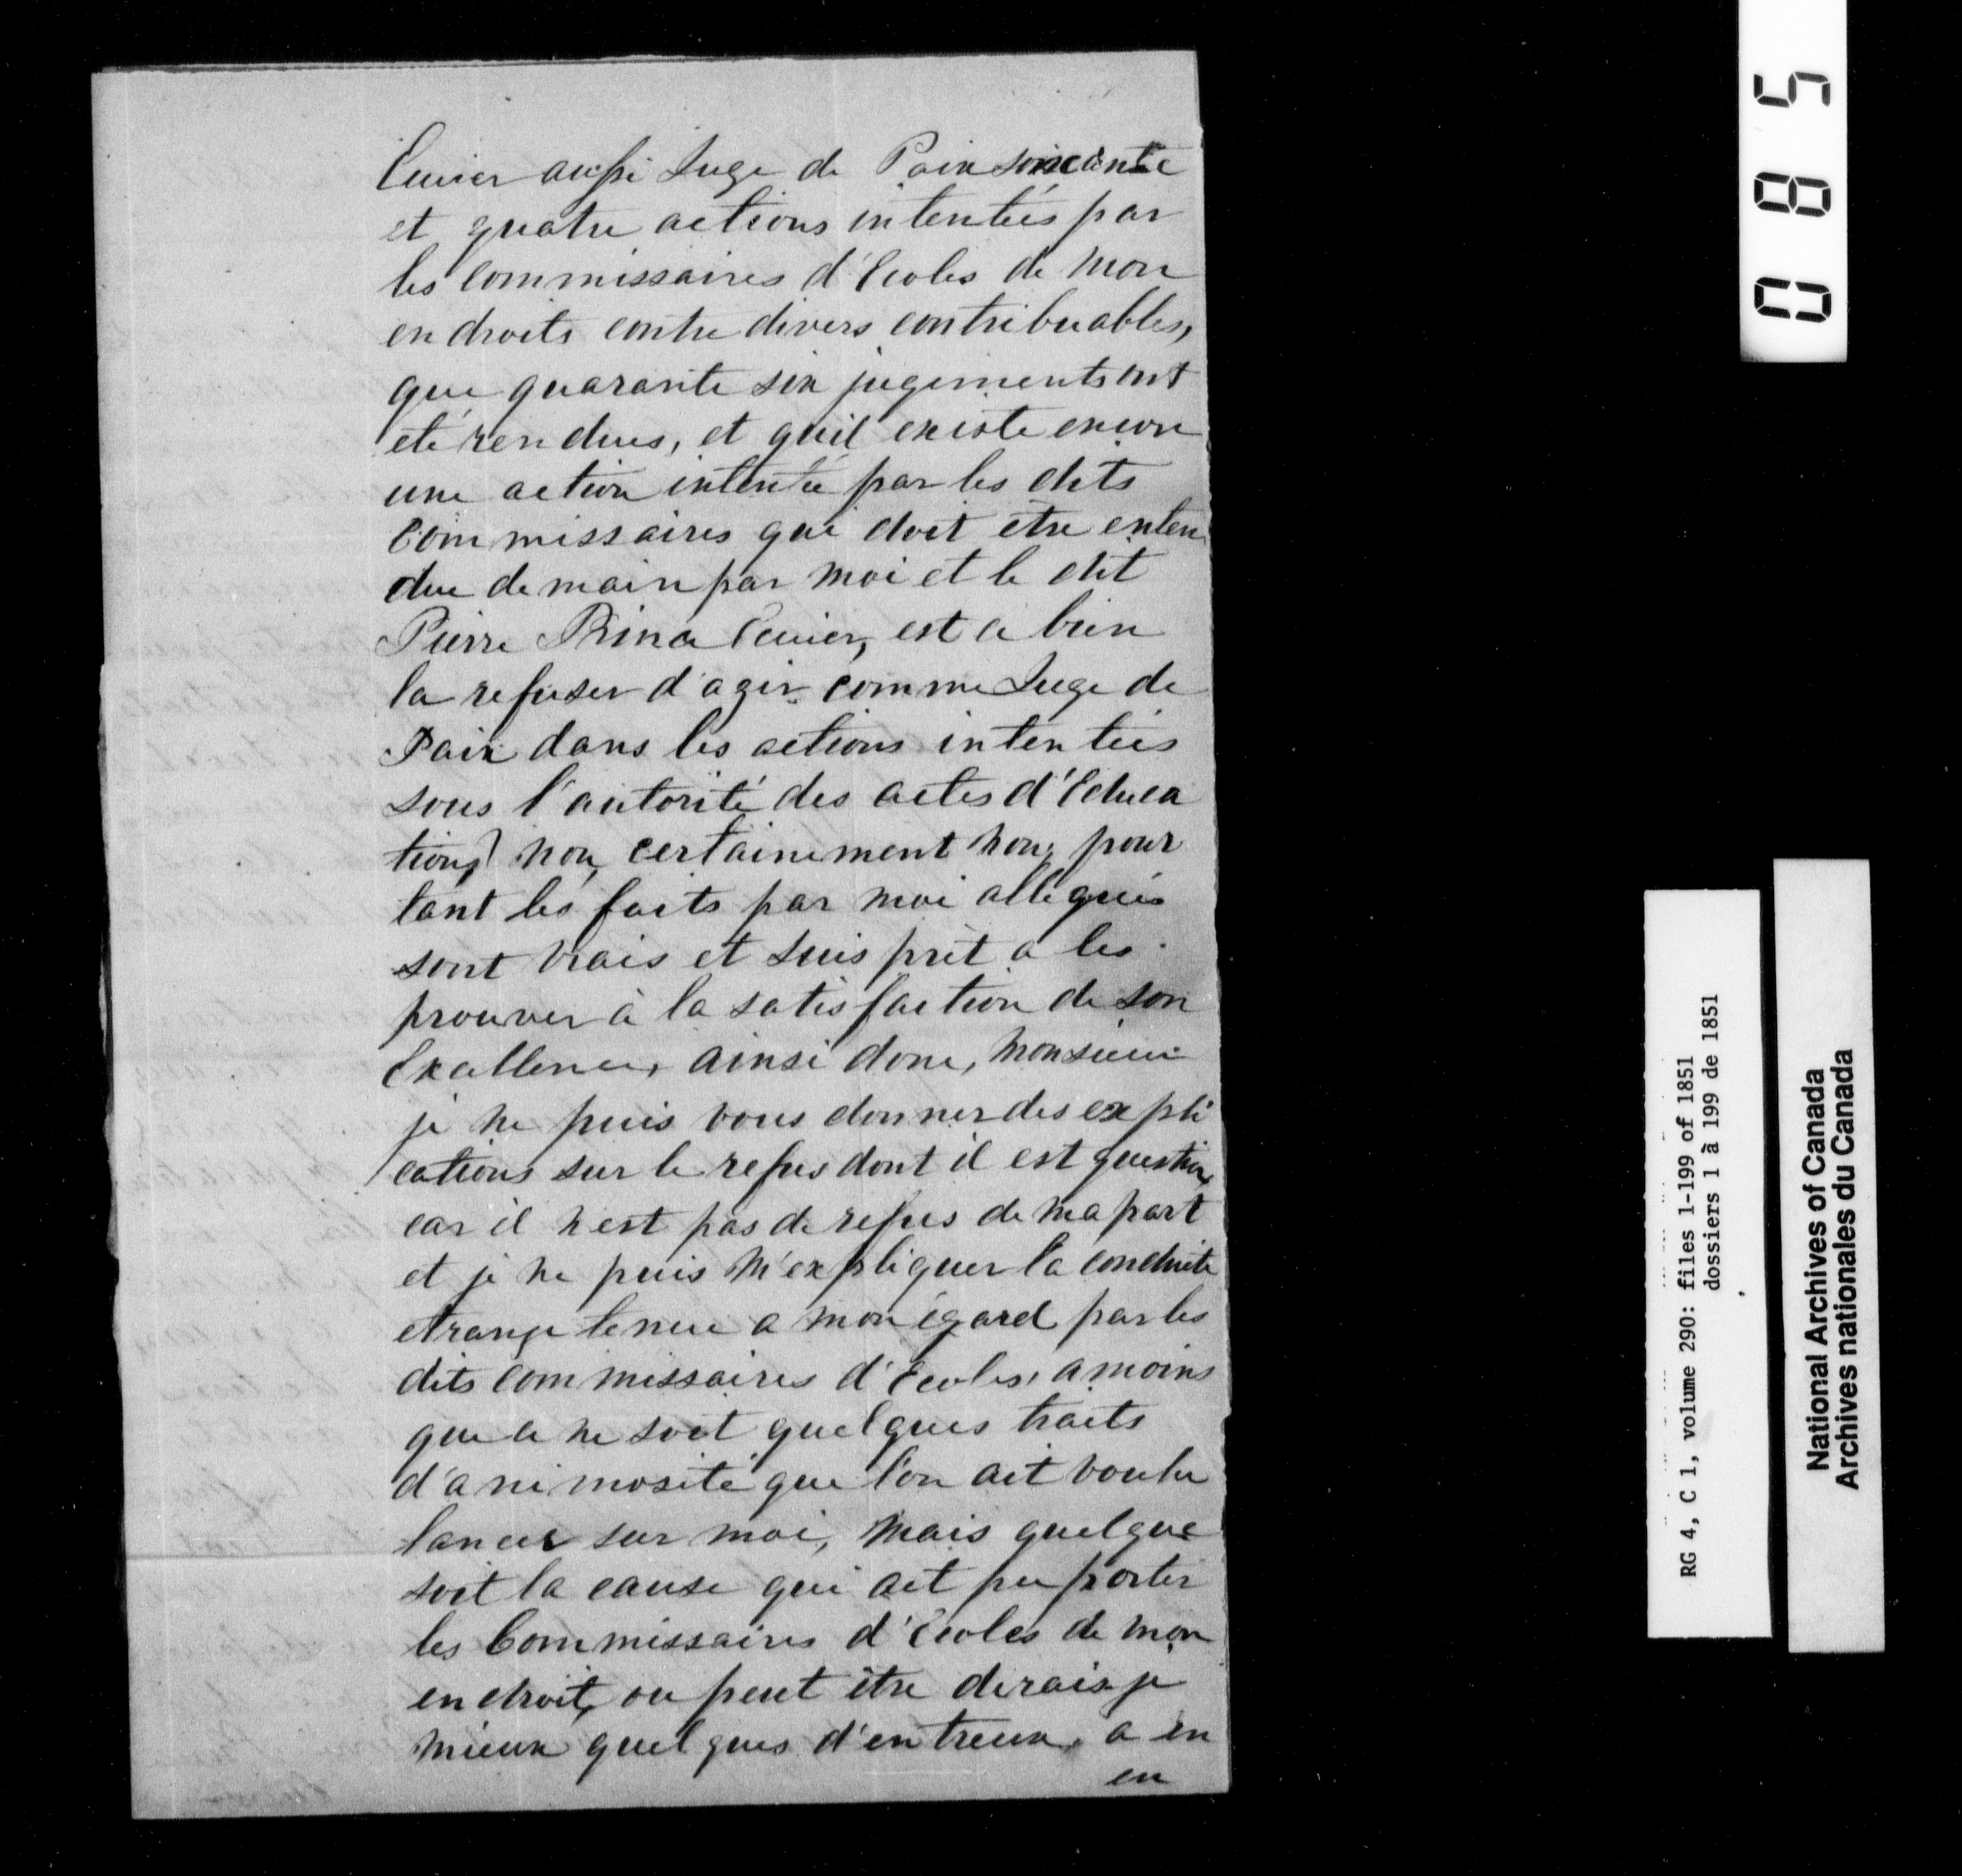 Cuvier aussi Juge de Paix soixante
et quatre actions intentées par
les Commissaires d'Ecoles de mon
endroits contre divers contribuables,
que quarante six jugements ont
eté rendues, et quil existe encore
une action intentée par les dits
Commissaires qui doit etre enten
due demain par moi et le dit
Pierre Cuvier, est ce bien
la refuser d'agir comme Juge de
Paix dans les actions intentées
sous l'autorité des actes d'Educa
tion? non, certainement non, pour
tant les faits par moi allegués
sont vrais et suis prêt a les
prouver à la satisfaction de son
Excellence, ainsi donc, Monsieur
je ne puis vous donner des expli
cations sur le refus dont il est question,
car il n'est pas de refus de ma part
et je ne puis m'expliquer la conduite
etrange tenue a mon égard par les
dits commissaires d'Ecoles, a moins
que ce ne soit quelques traits
d'animosité que l'on ait voulu
lancer sur moi, mais quelque
soit la cause qui ait pu porter
les Commissaires d'Ecoles de mon
endroit, ou peut être dirais je
mieux quelques d'entreux, a en
en
0 8 5
RG 4, C 1, volume 290: files 1-199 of 1851
dossiers 1 à 199 de 1851
National Archives of Canada
Archives nationales du Canada